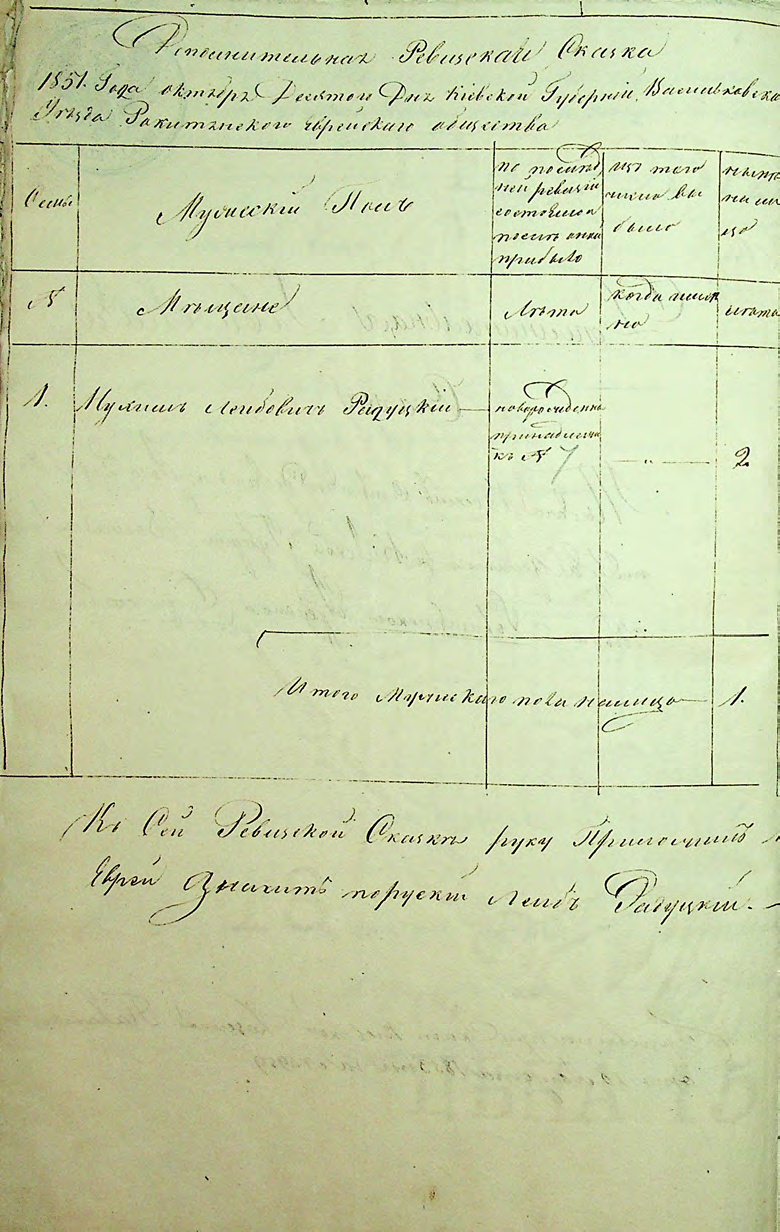 Дополнительная Ревизская Сказка
1851. Года октября Десятого Дня Кіевской Губерніи, Васильковско
Уѣзда Ракитянского Еврейскаго общества
Семьи
Мужескій Полъ
по послѣд
ней ревизіи
состояло и
послѣ оной
прибыло
изъ того
числа вы
было
нынѣ
на ли
цо
№
Мѣщане
Лѣта
когда имен
но
лѣта
1. Лейбовичъ Радуцкій — новорожденн
принадлежи
къ № 7 — „ — 2
Итого Мужескаго пола налицо — 1.
Къ Сей Ревизской Сказкѣ руку Приложилъ
Еврей Значитъ поруский Лейбъ Радуцкій. —